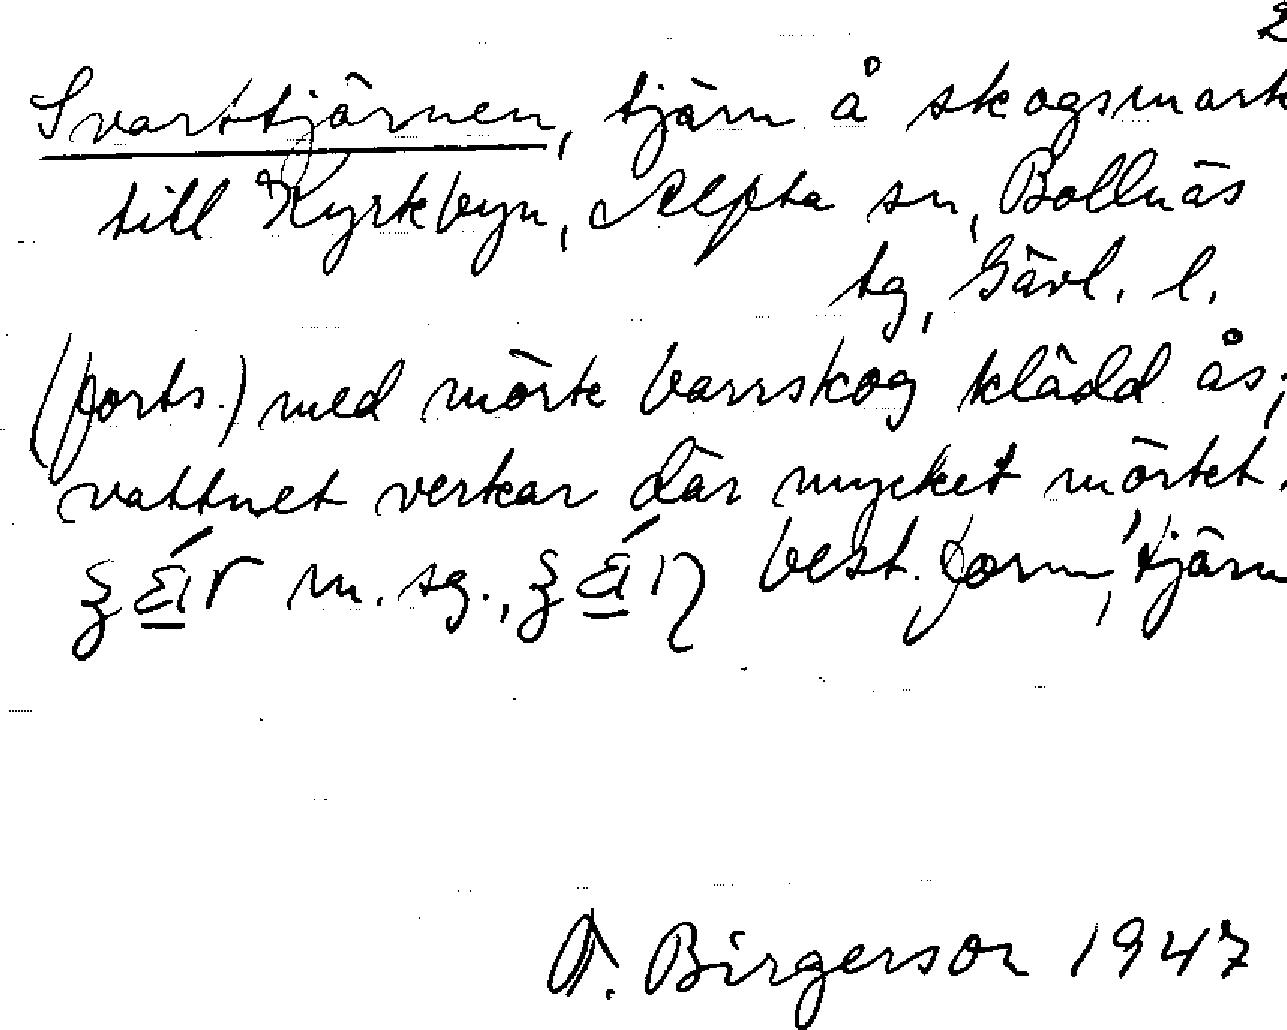 2
Svarttjärnen, tjärn å skogsmark
till Kyrkbyn, Alfta sn, Bollnäs
tg, Gävl. l.
(forts.) med mörk barrskog klädd ås;
vattnet verkar där mycket mörkt.
m. sg., best. form, 'tjärn
Birgerson 1947